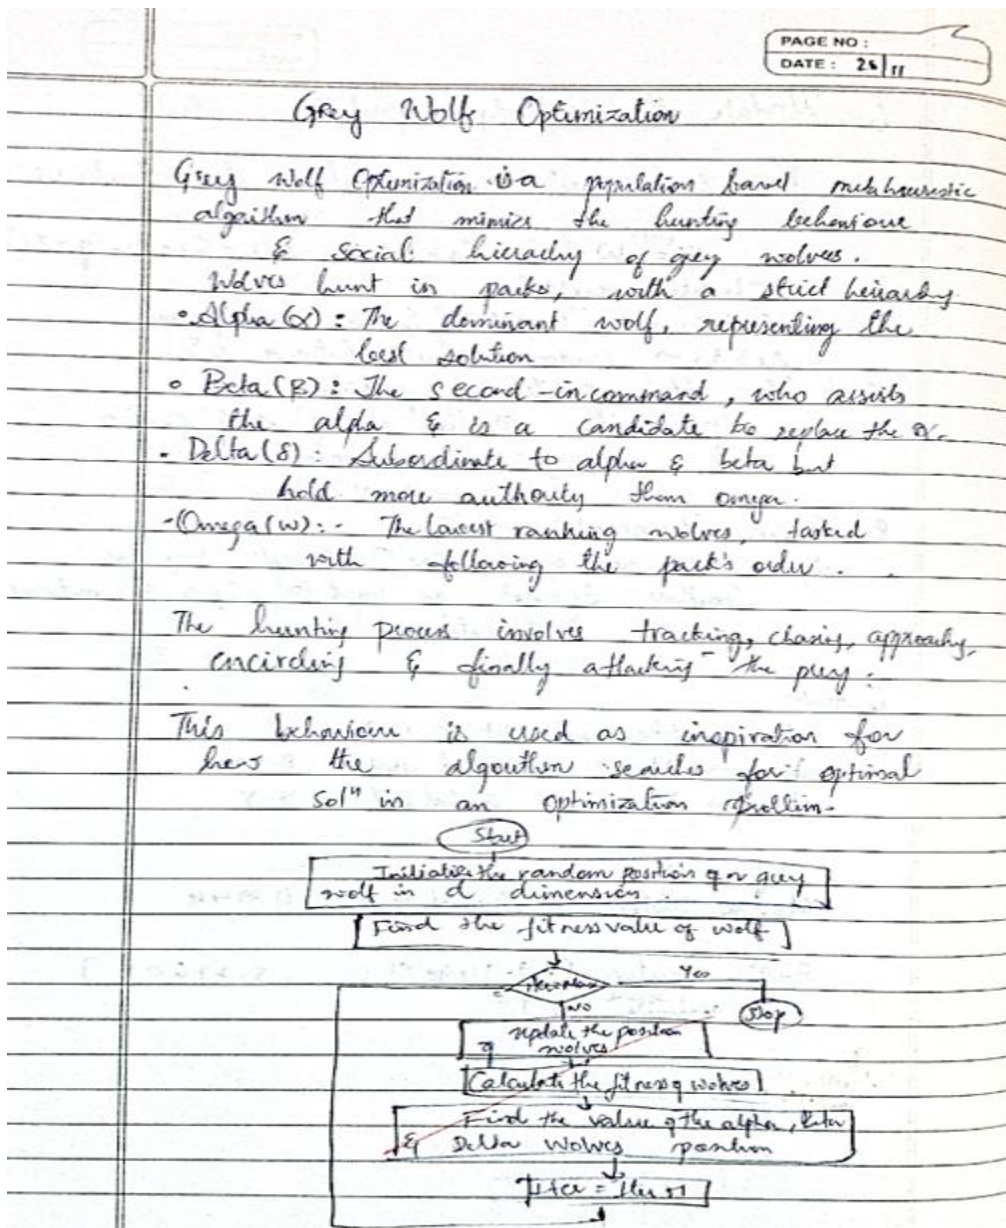 PAGE NO :
DATE : 26/11
Grey Wolf Optimization
Grey Wolf Optimization is a population based metaheuristic
algorithm that mimics the hunting behaviour
& social hierachy of grey wolves.
Wolves hunt in packs, with a strict heirarchy
• Alpha (α) : The dominant wolf, representing the
best solution
• Beta (β) : The second-in command, who assists
the alpha & is a candidate to replace the α.
• Delta (δ) : Subordinate to alpha & beta but
hold more authority than omega.
- Omega (ω) : - The lowest ranking wolves, tasked
with following the pack's order.
The hunting process involves tracking, chasing, approachg,
encircling & finally attacking the prey.
This behaviour is used as inspiration for
how the algorithm searches for optimal
solⁿ in an optimization problem.
Start
Initialize the random position of n grey
wolf in d dimension.
Find the fitness value of wolf
iter=Max
Yes
No
Stop
Update the position
of wolves
Calculate the fitness of wolves
Find the value of the alpha, beta
& Delta Wolves position
Iter = Iter + 1